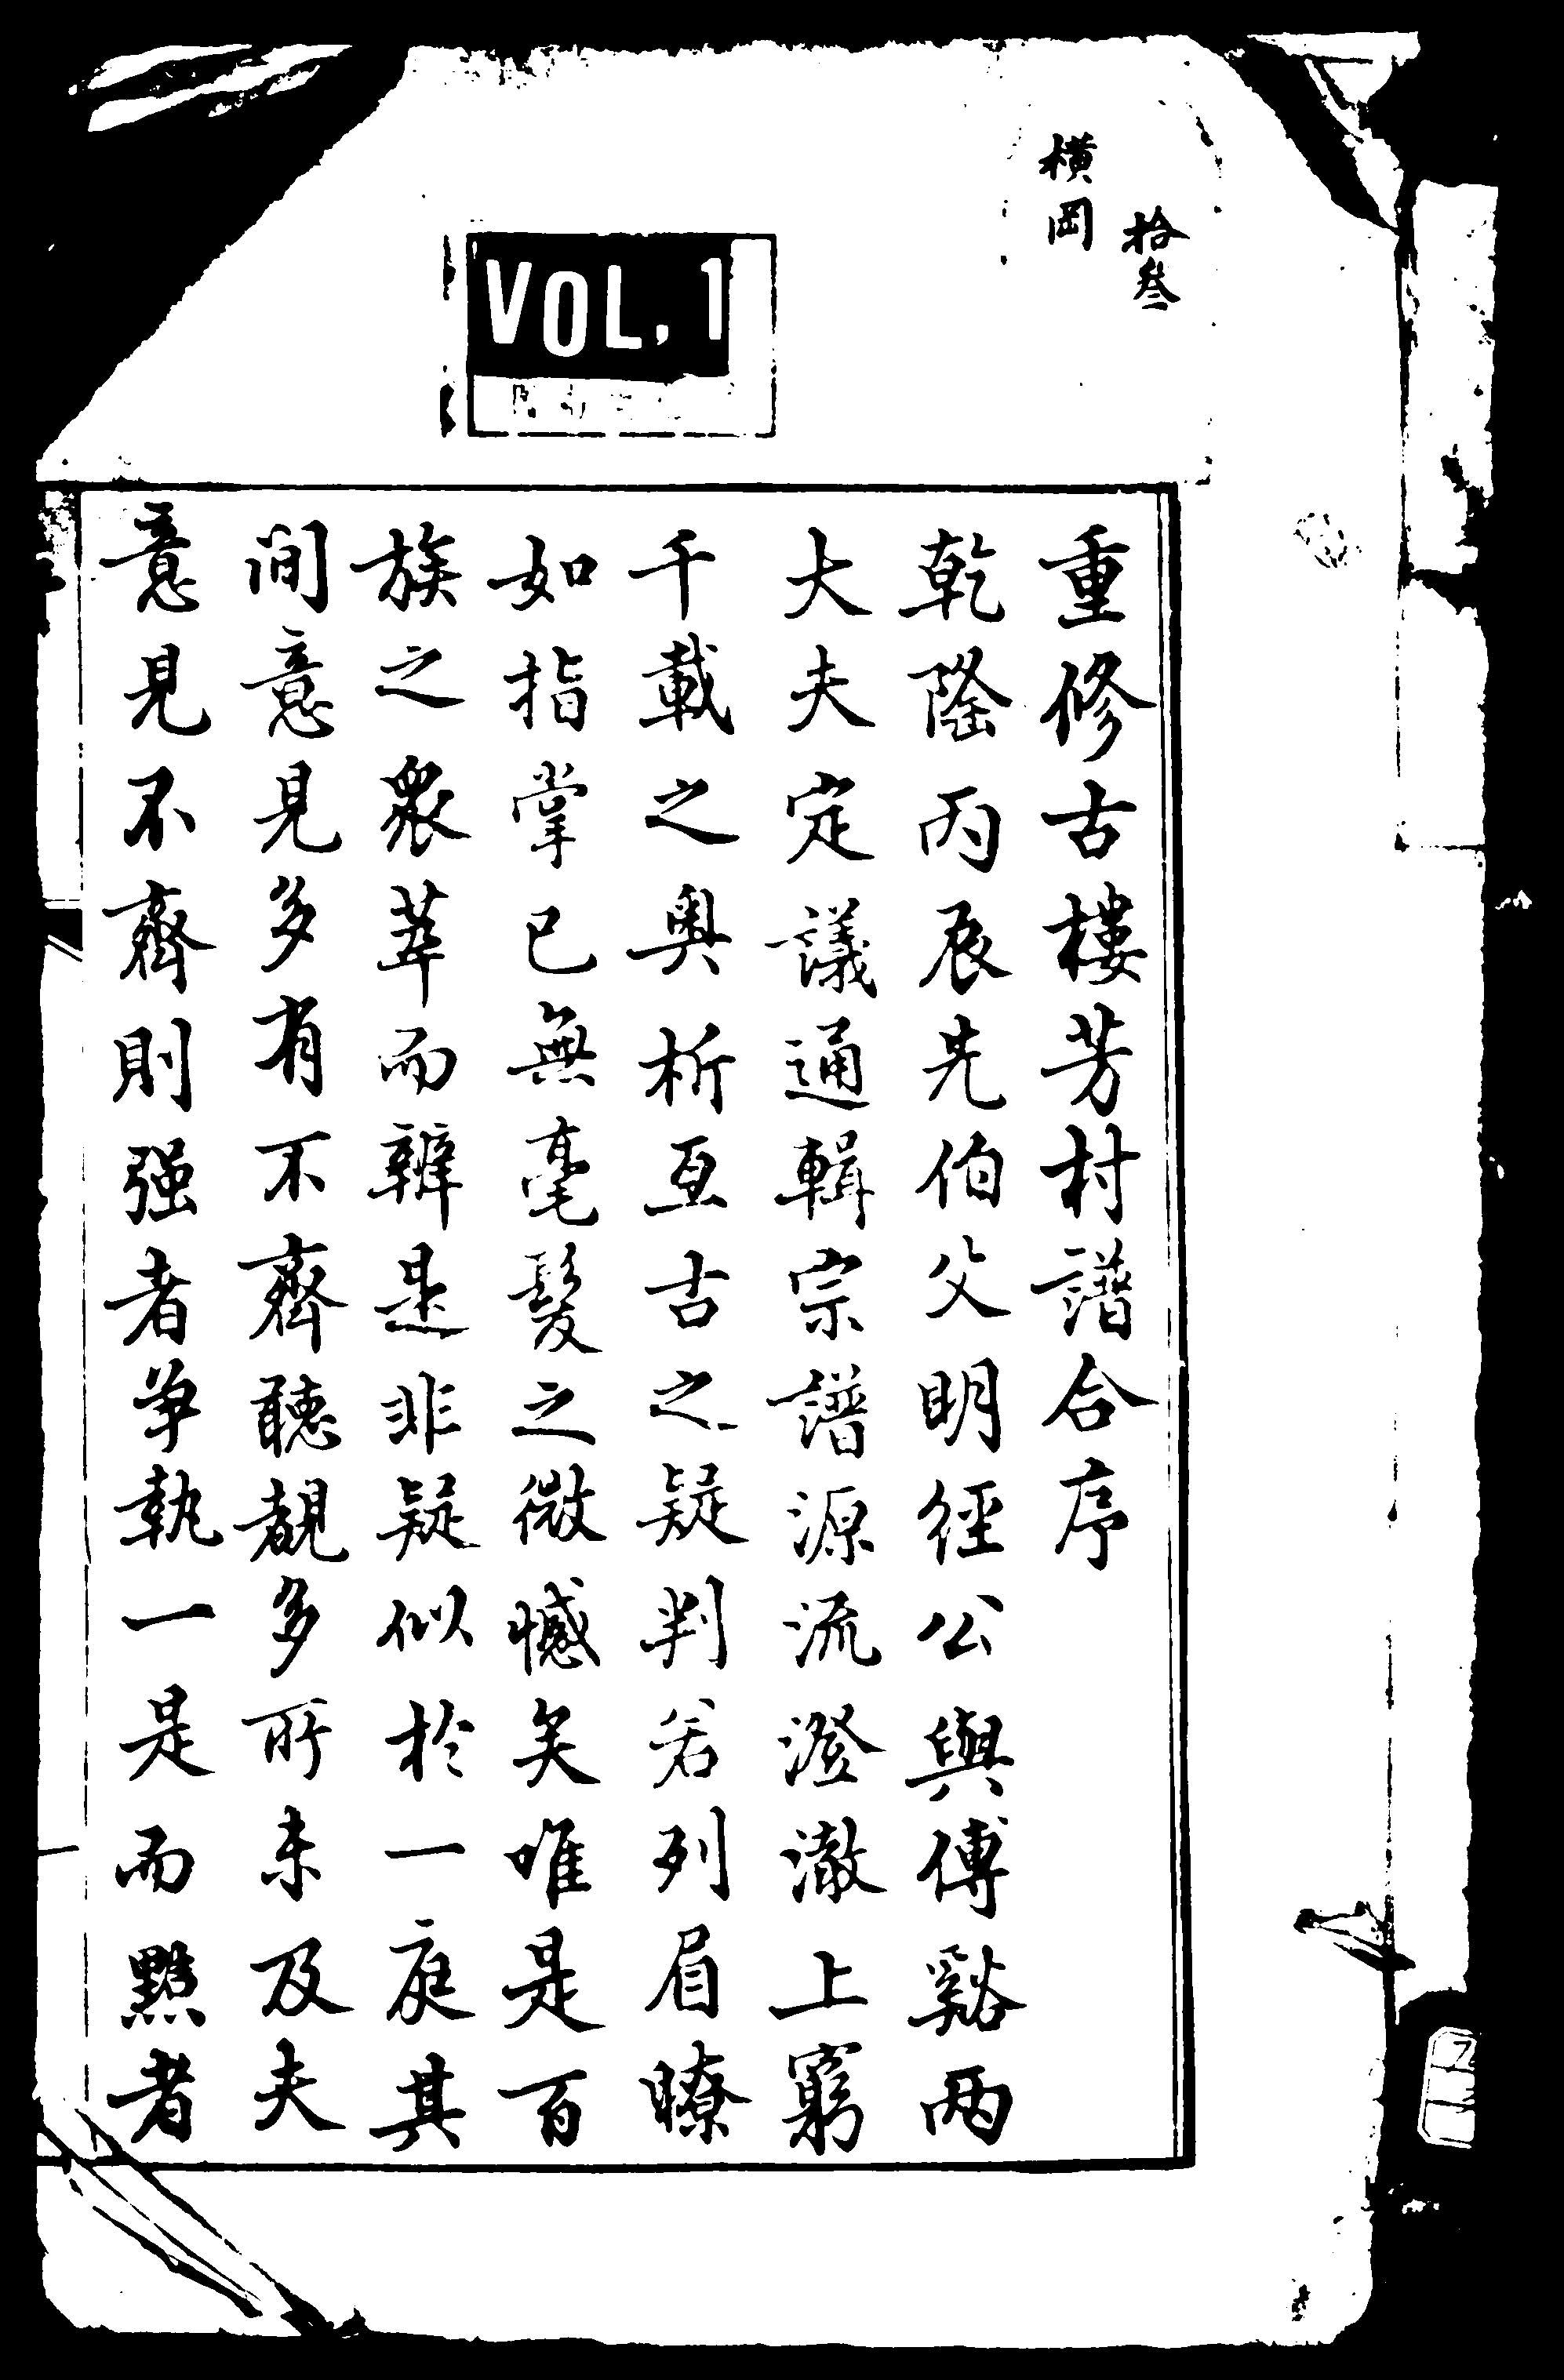 拾叁
橫岡
VOL. 1
重修古樓芳村譜合序
乾隆丙辰先伯父明經公與傅谿兩
大夫定議通輯宗譜源流澄澈上窮
千載之奧析亙古之疑判若列眉瞭
如指掌已無毫髮之微憾矣唯是百
族之衆萃而辨是非疑似於一庭其
間意見多有不齊聽覩多所未及夫
意見不齊則强者爭執一是而黠者